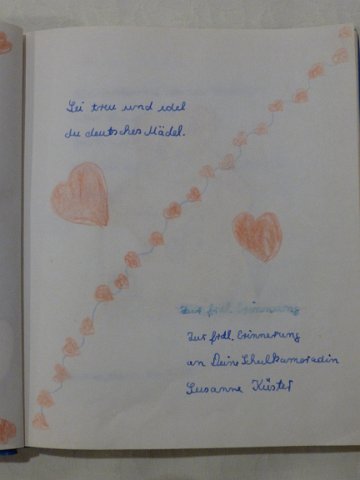 Sei treu und edel
du deutsches Mädel.
Zur frdl. Erinnerung
Zur frdl. Erinnerung
an Deine Schulkameradin
Susanne Küster